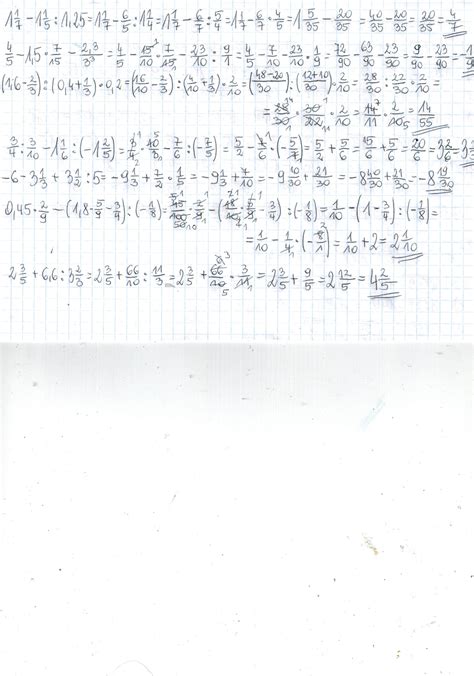 1 1/7 - 1 1/5 : 1,25 = 1 1/7 - 6/5 : 1 1/4 = 1 1/7 - 6/5 : 5/4 = 1 1/7 - 6/7 · 4/5 = 1 5/35 - 20/35 = 40/35 - 20/35 = 20/35 = 4/7
4/5 - 1,5 · 7/15 - 2,3/ = 4/5 - 15/10 · 7/15 - 23/10 : 9/1 = 4/5 - 7/10 - 23/10 · 1/9 = 72/90 - 63/90 - 23/90 = 9/90 - 23/90 =
(1,6 - 2/3) : (0,4 + 1/3) · 0,2 = (16/10 - 2/3) : (4/10 + 1/3) · 2/10 = (48-20/30) : (12+10/30) · 2/10 = 28/30 : 22/30 · 2/10 =
= 28/30 · 30/22 · 2/10 = 14/11 · 2/10 = 14/55
3/4 : 3/10 - 1 1/6 : (-1 2/5) = 3/4 · 10/3 - 7/6 : (-7/5) = 5/2 - 7/6 · (-5/7) = 5/2 + 5/6 = 15/6 + 5/6 = 20/6 = 3 2/6 = 3
-6 - 3 1/3 + 3 1/2 : 5 = -9 1/3 + 7/2 · 1/5 = -9 1/3 + 7/10 = -9 10/30 + 21/30 = -8 40/30 + 21/30 = -8 19/30
0,45 · 2/9 - (1,8 · 5/9 - 3/4) : (-1/8) = 45/100 · 2/9 - (18/10 · 5/9 - 3/4) : (-1/8) = 1/10 - (1 - 3/4) : (-1/8) =
= 1/10 - 1/4 · (-8/1) = 1/10 + 2 = 2 1/10
2 3/5 + 6,6 : 3 2/3 = 2 3/5 + 66/10 : 11/3 = 2 3/5 + 66/10 · 3/11 = 2 3/5 + 9/5 = 2 12/5 = 4 2/5